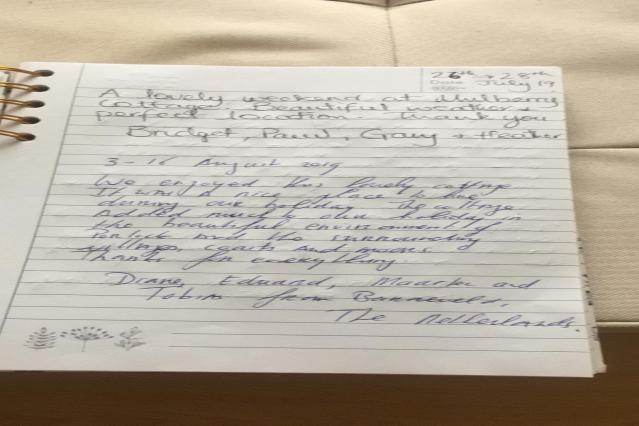 26th - 28th
Date July 19
A lovely weekend at Mulberry
Cottage. Beautiful
perfect location. Thank you
Bridget, Paul, Gary + Heather
3-16 August 2019
We enjoyed this lovely cottage
It was a nice place to live
during our holiday. The cottage
added much to our holiday in
the beautiful environment of
and the surrounding
villages, coasts and
Thanks for everything.
Diane, Eduard, Maarten and
Tobias from Barneveld,
The Netherlands.